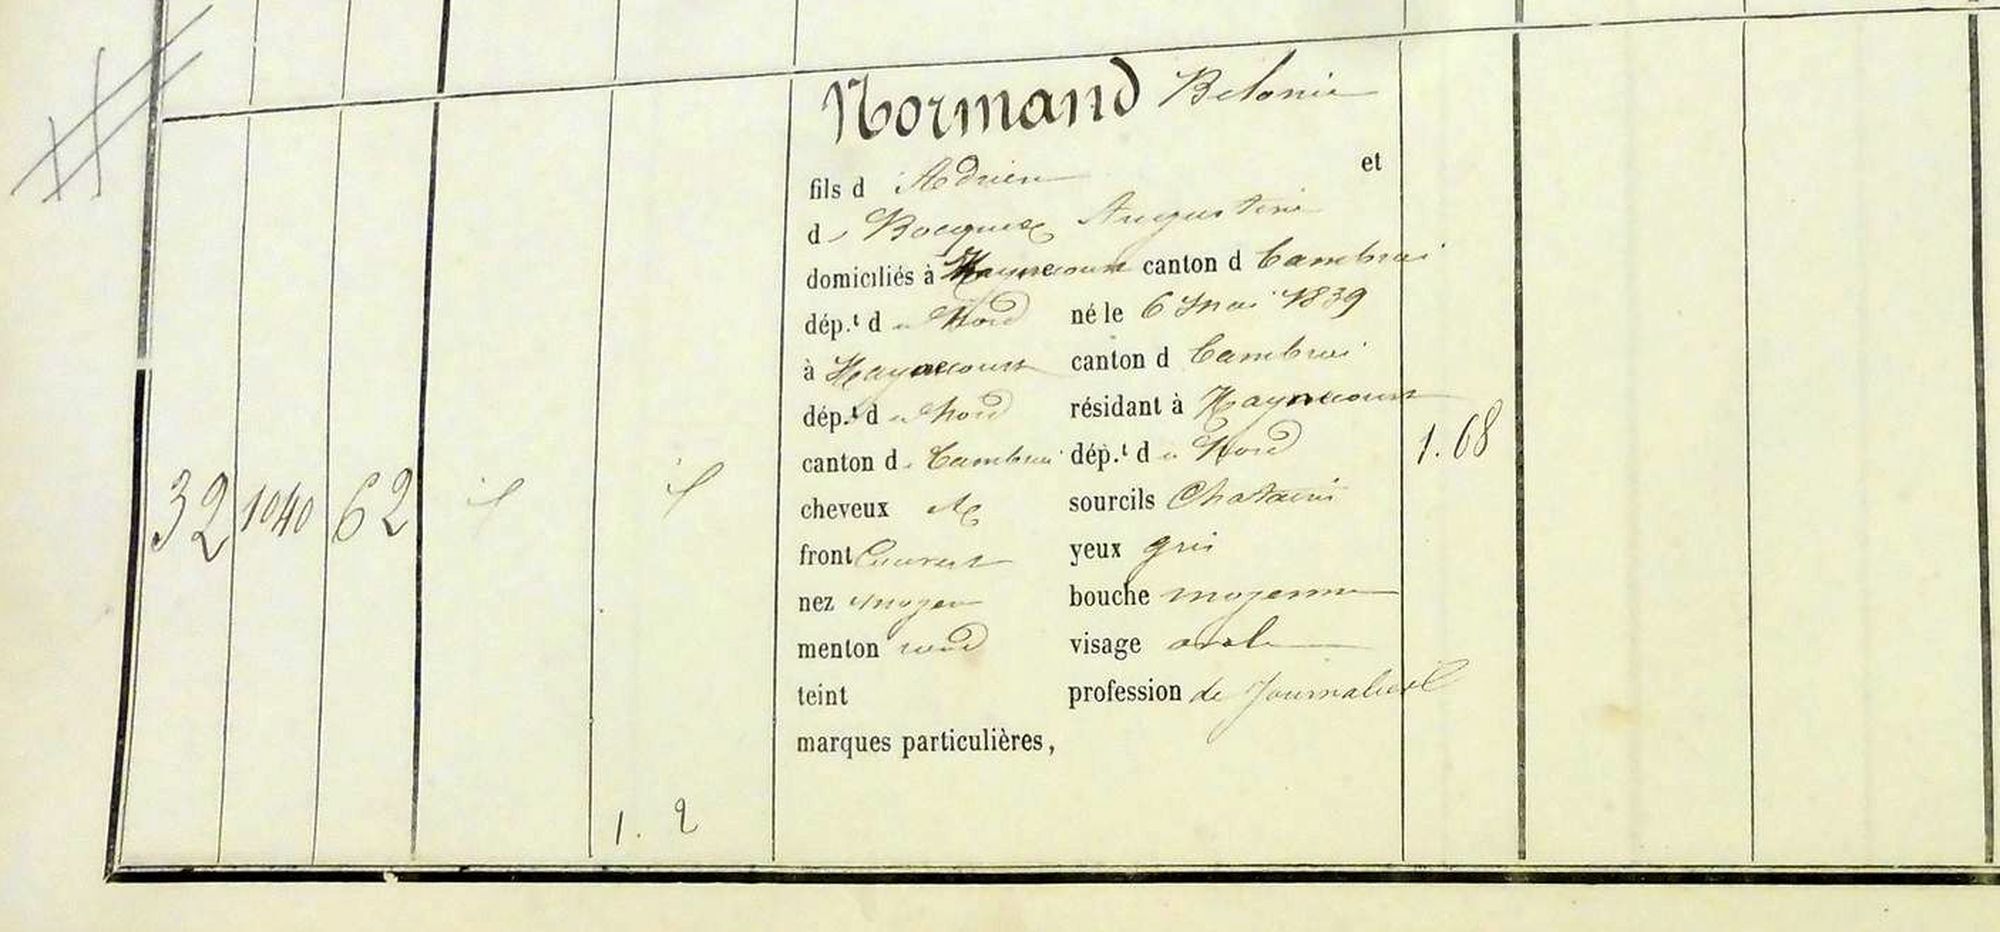 Normand Belonie
fils d Adrien et
de Bocquez Augustine
domiciliés à Haynecourt canton d Cambrai
dép.t d u Nord né le 6 Mai 1839
à Haynecourt canton d Cambrai
dép.t d u Nord résidant à Haynecourt
canton d e Cambrai dép.t d u Nord
1.68
32 1040 62 id id
cheveux sourcils Chatains
front Couvert yeux gris
nez moyen bouche moyenne
menton rond visage ovale
teint profession de Journalier
marques particulières,
1. 2